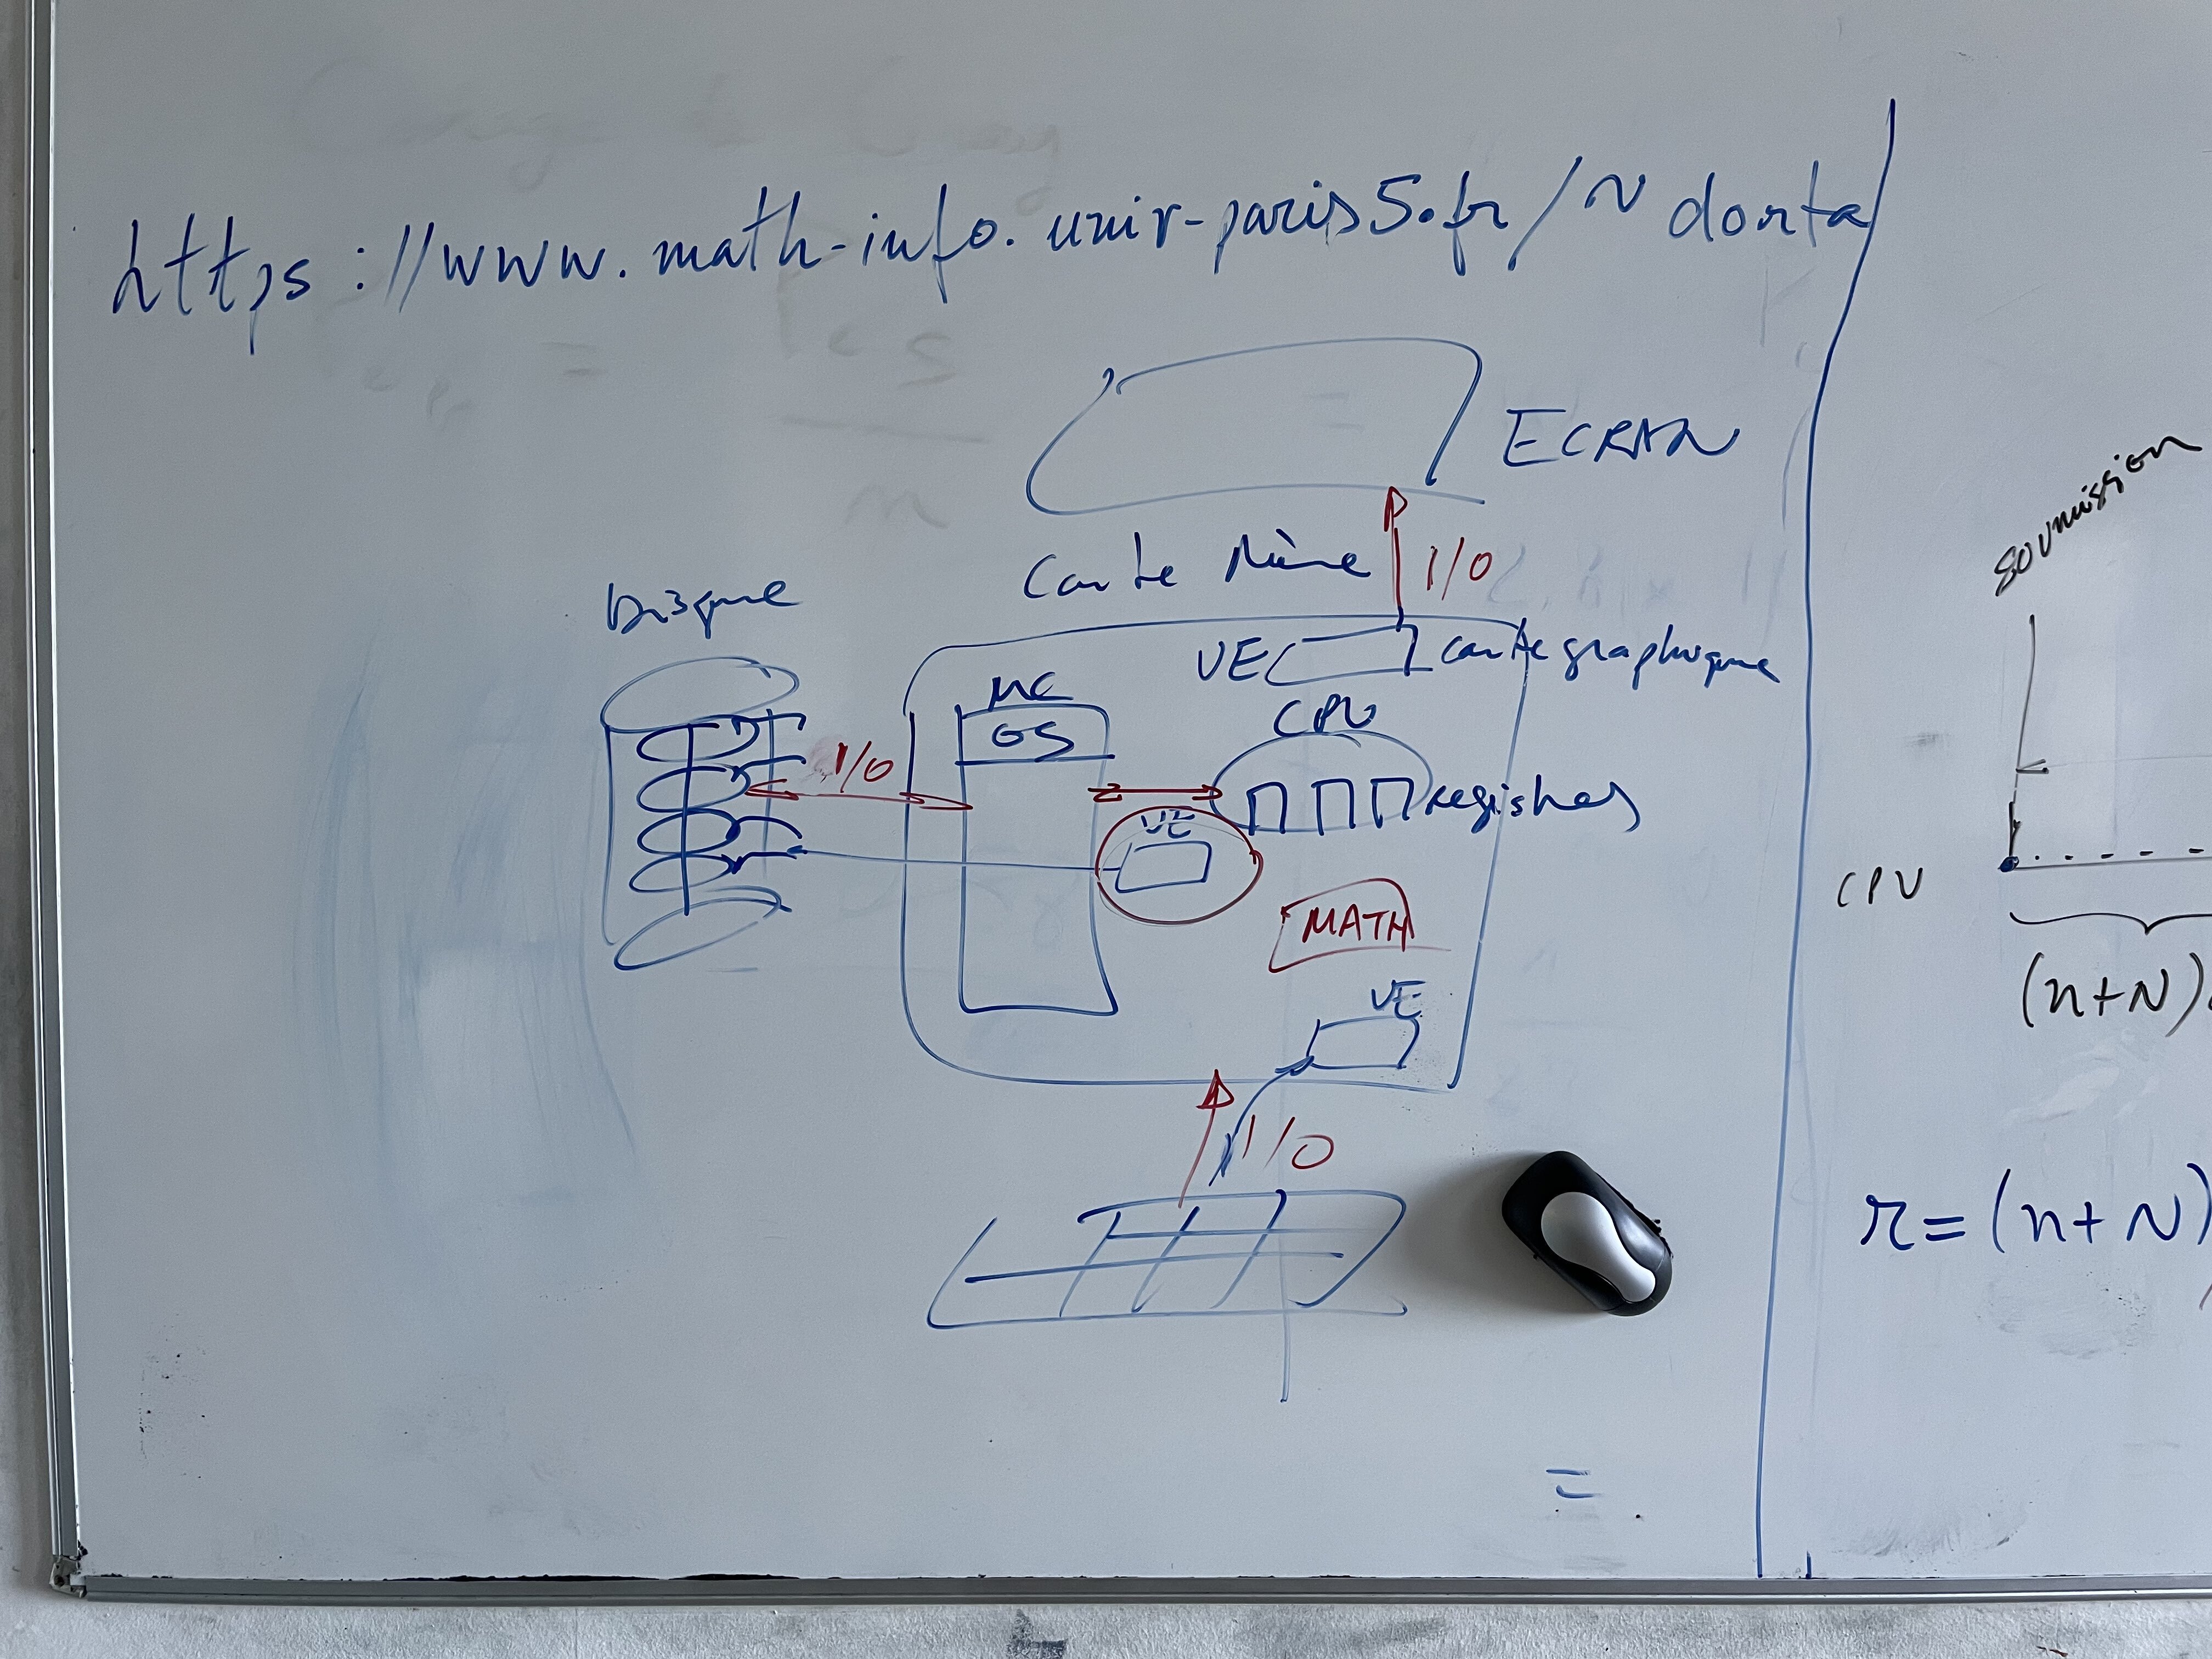 https://www.math-info.univ-paris5.fr/~donta
ECRAN
Carte Mère
I/O
Disque
UE
carte graphique
MC
OS
CPU
I/O
registres
UE
MATH
UE
I/O
=
soumission
CPU
(n+N)
r=(n+N)